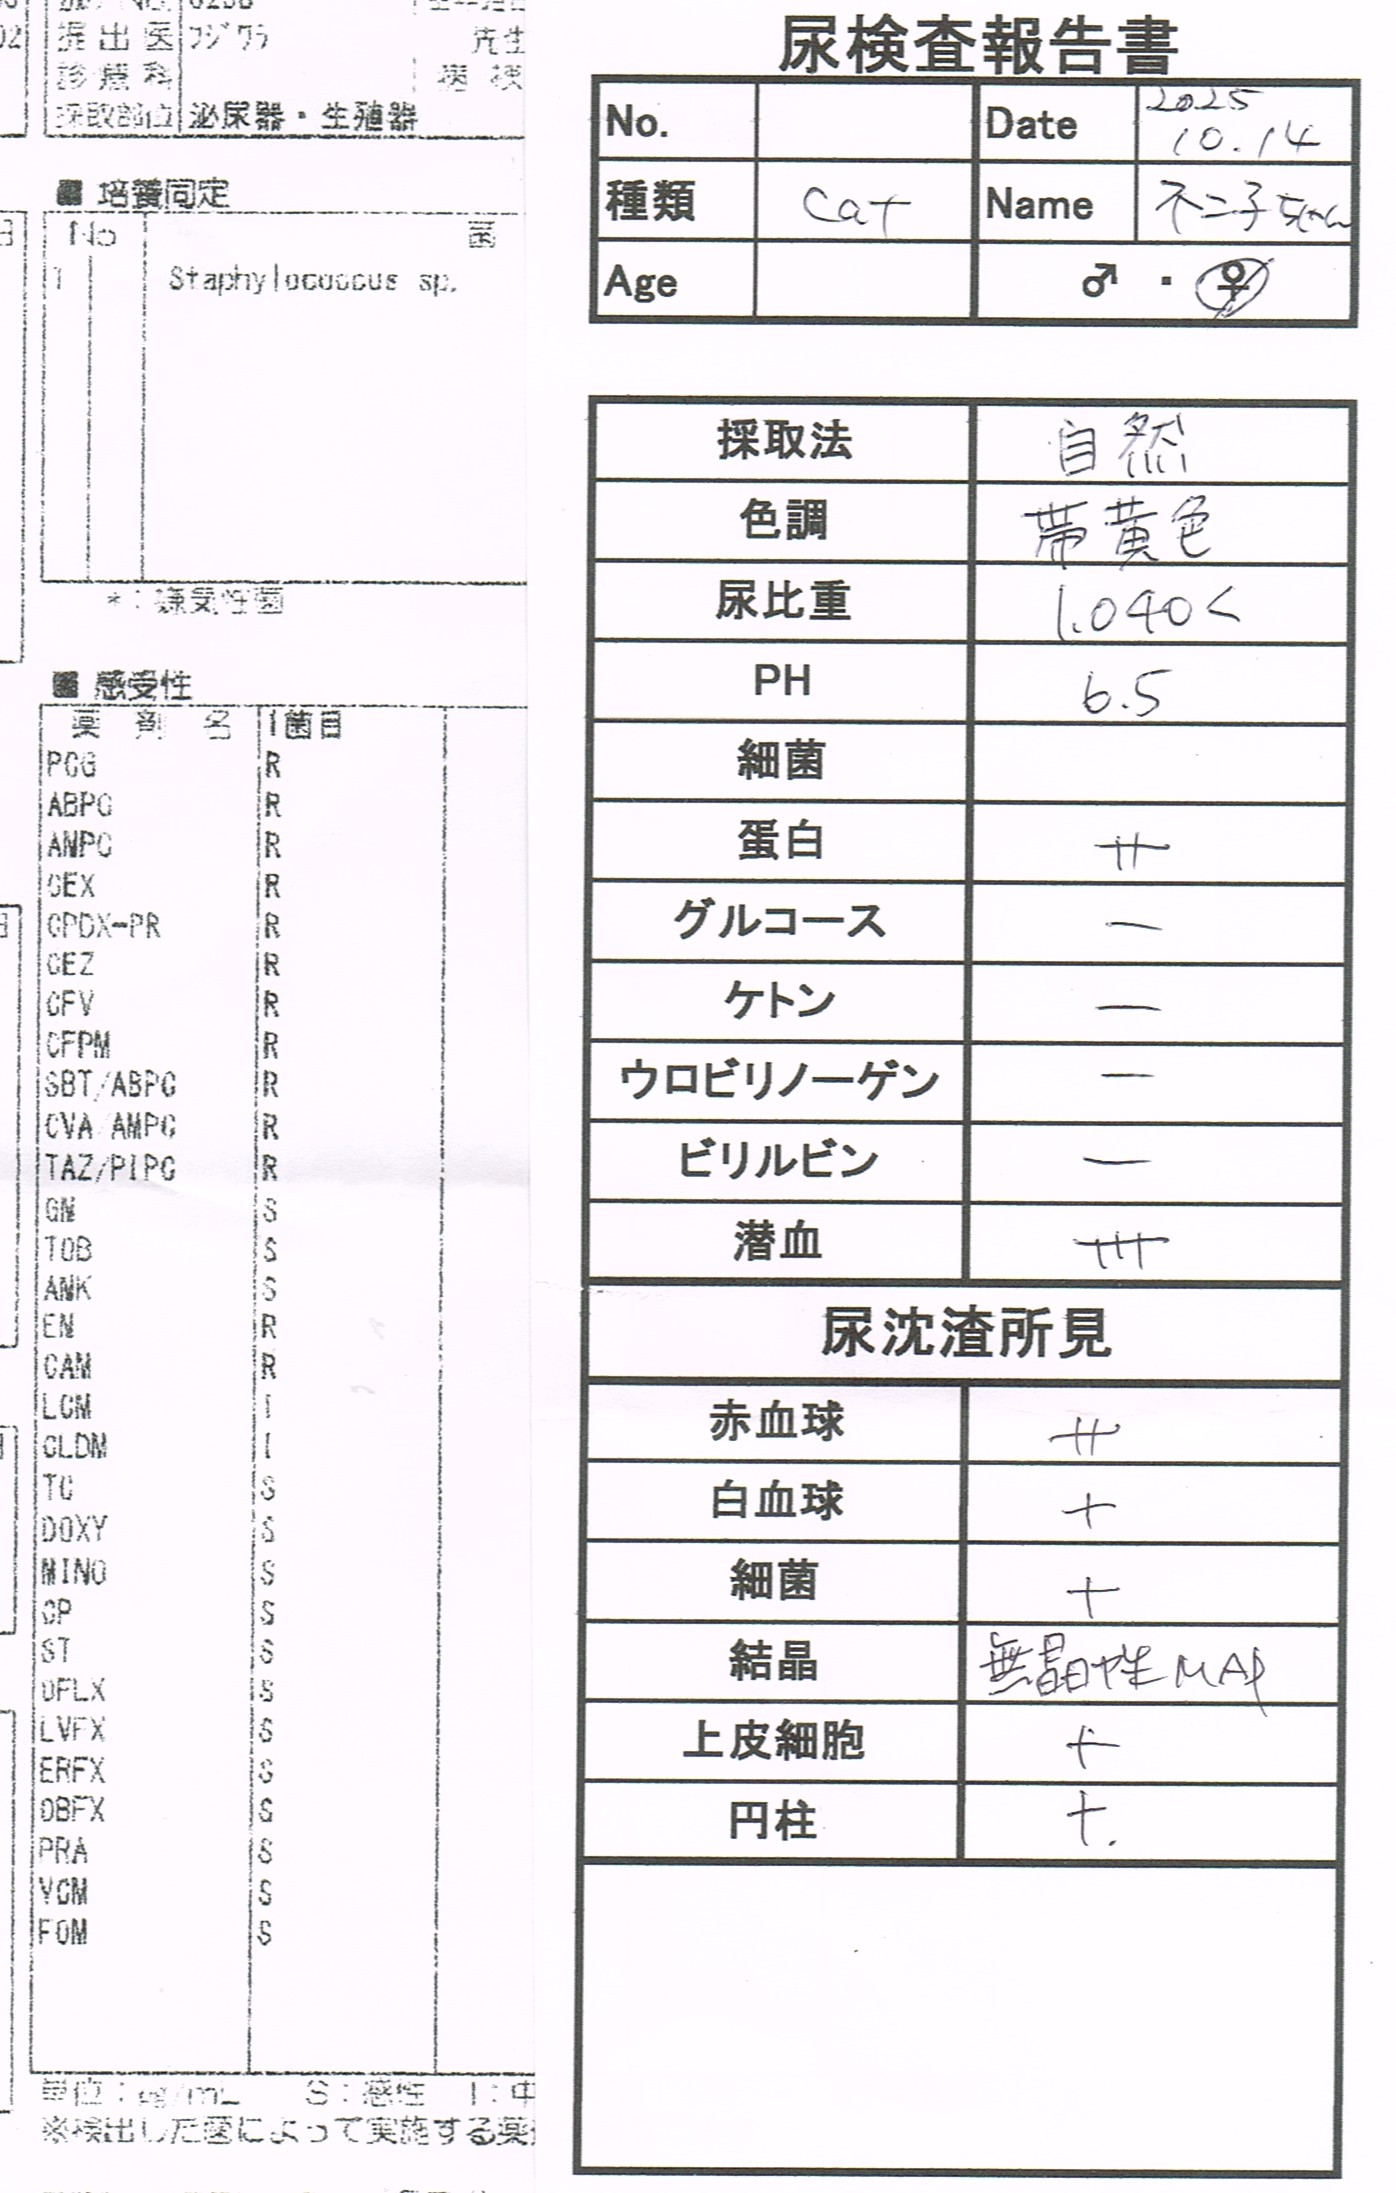 提出医 フジワラ 先生
診療科
採取部位 泌尿器・生殖器
■ 培養同定
No 菌
1 Staphylococcus sp.
*：嫌気性菌
■ 感受性
薬剤名 1菌目
PCG R
ABPC R
AMPC R
CEX R
CPDX-PR R
CEZ R
CFV R
CFPM R
SBT/ABPC R
CVA/AMPC R
TAZ/PIPC R
GM S
TOB S
AMK S
EM R
CAM R
LCM I
CLDM I
TC S
DOXY S
MINO S
CP S
ST S
OFLX S
LVFX S
ERFX S
OBFX S
PRA S
VCM S
FOM S
単位：μg/mL S：感性 I：中
※検出した菌によって実施する薬
尿検査報告書
No. Date 2025 10.14
種類 cat Name 不二子ちゃん
Age ♂ ・ ♀
採取法 自然
色調 帯黄色
尿比重 1.040<
PH 6.5
細菌
蛋白 ++
グルコース −
ケトン −
ウロビリノーゲン −
ビリルビン −
潜血 +++
尿沈渣所見
赤血球 ++
白血球 +
細菌 +
結晶 無晶性MAP
上皮細胞 +
円柱 +.